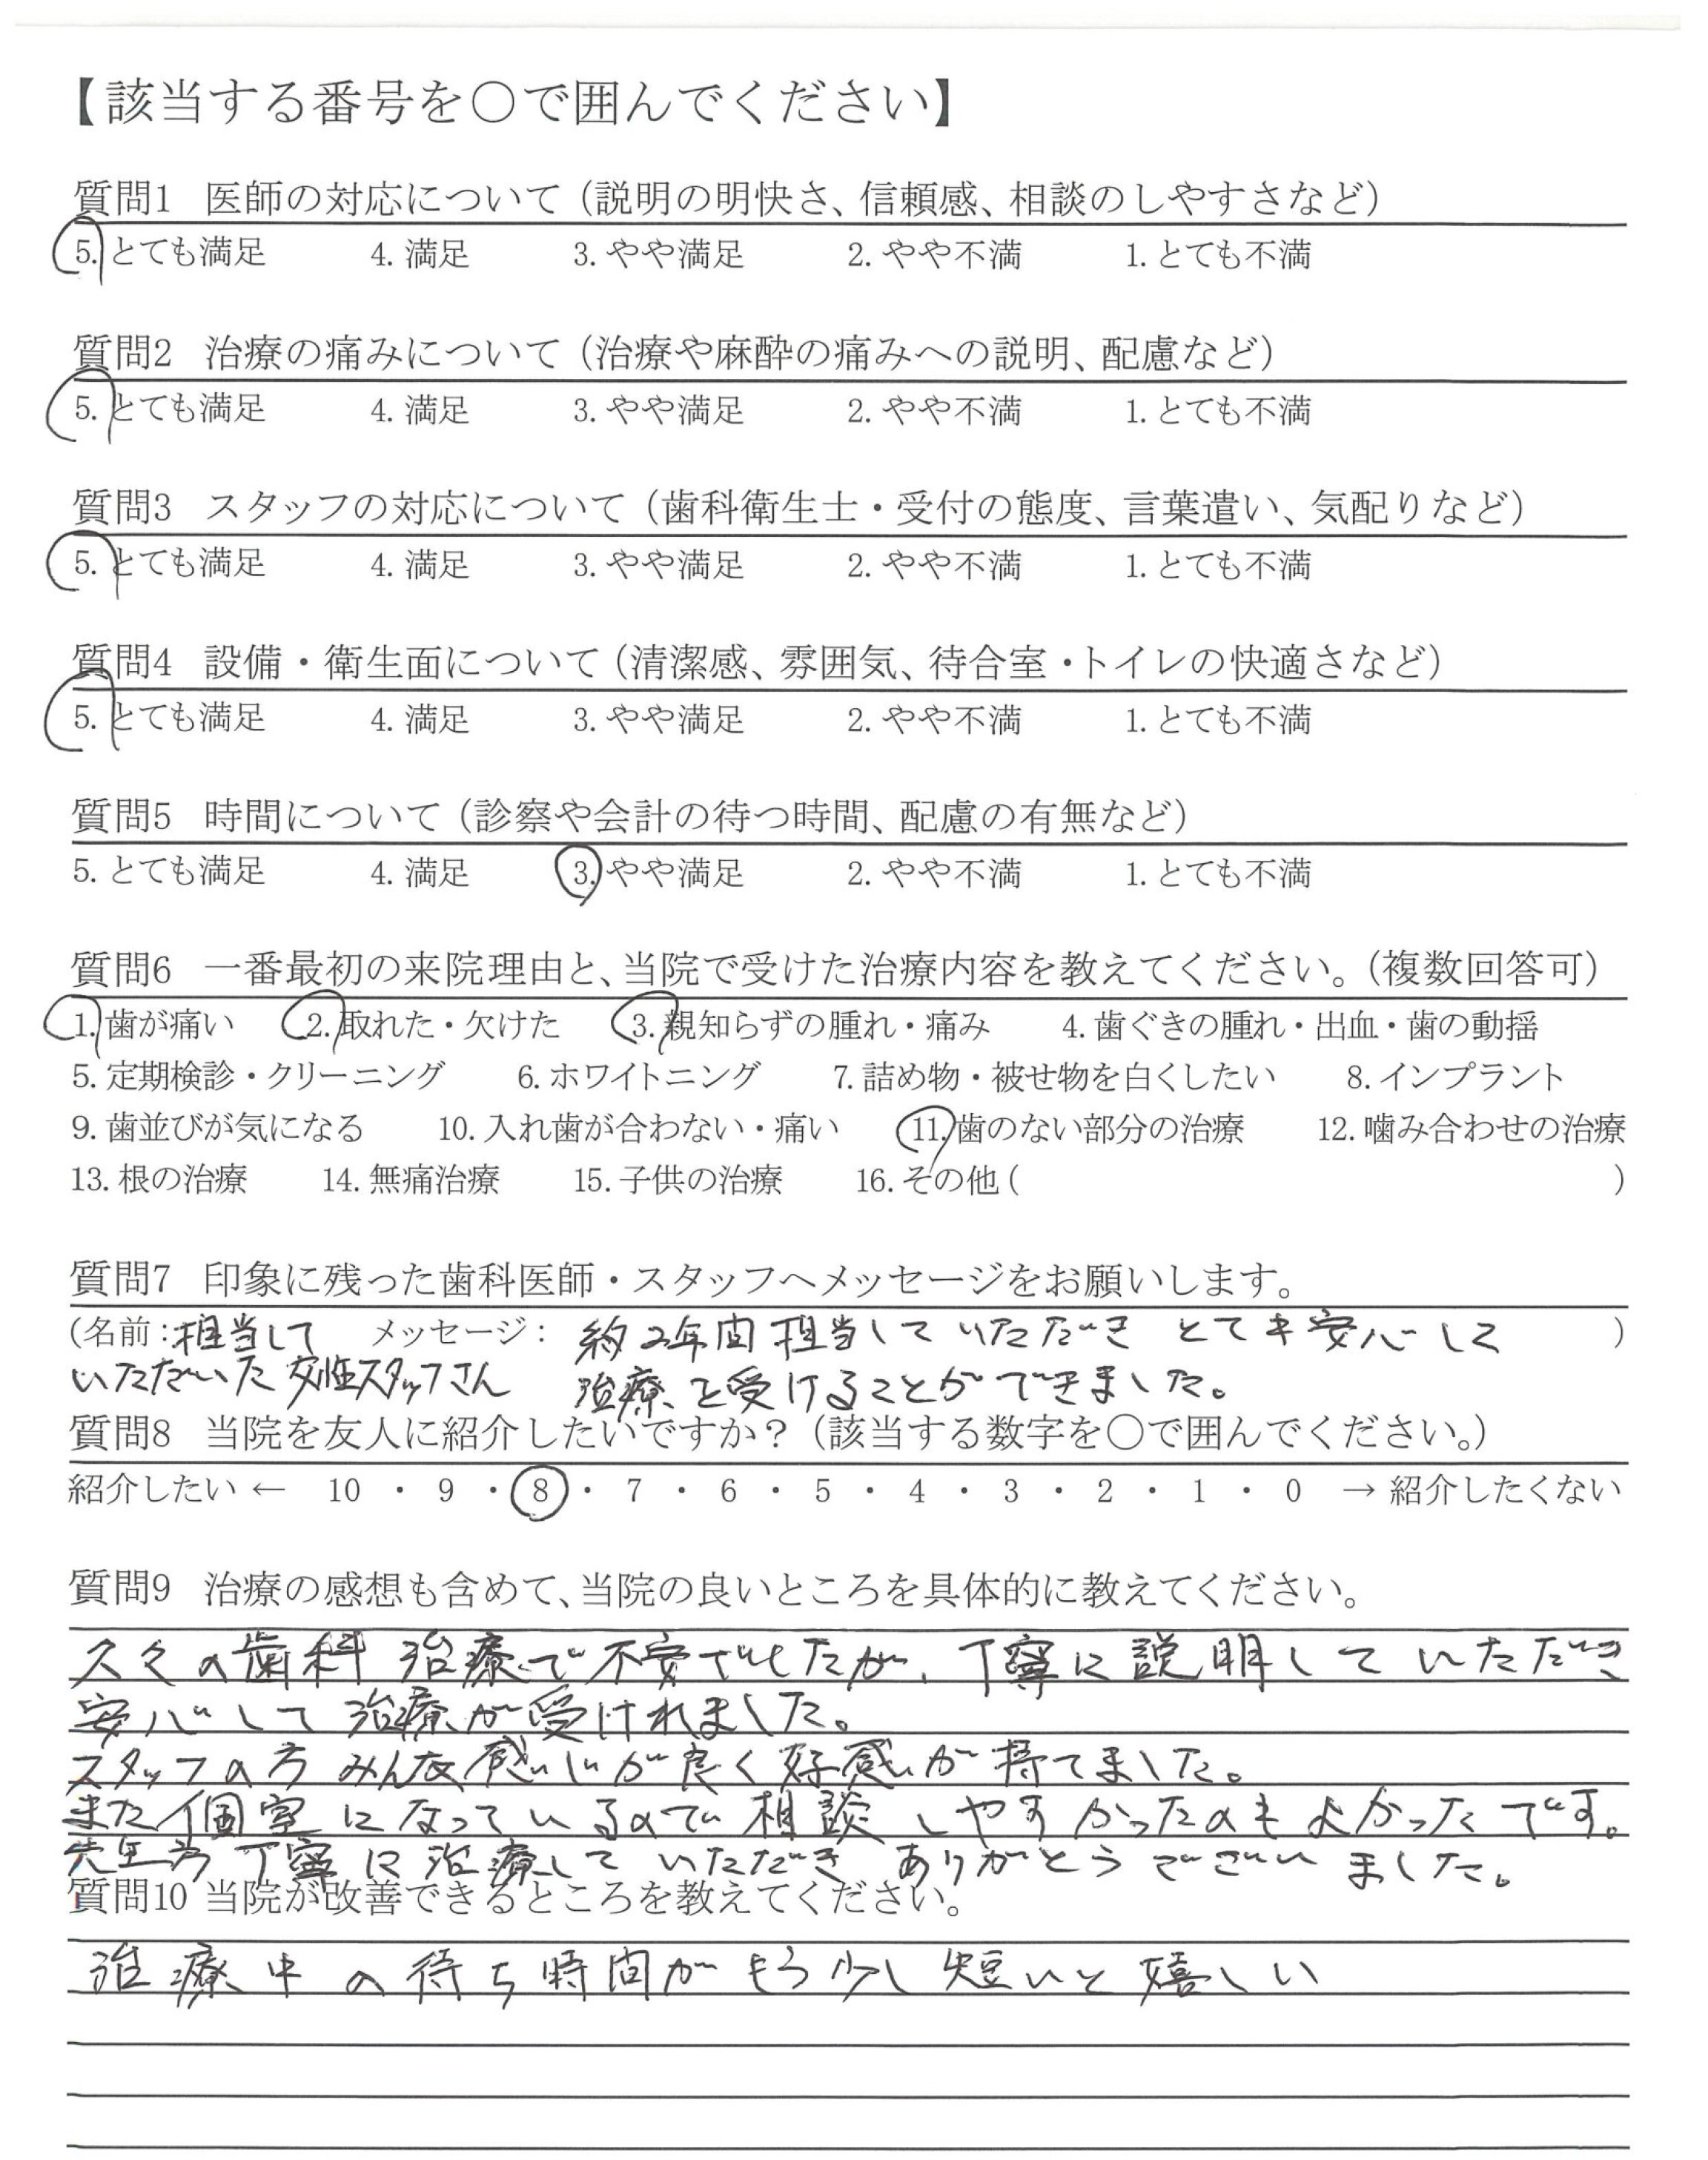 【該当する番号を○で囲んでください】
質問1 医師の対応について（説明の明快さ、信頼感、相談のしやすさなど）
5. とても満足 4. 満足 3. やや満足 2. やや不満 1. とても不満
質問2 治療の痛みについて（治療や麻酔の痛みへの説明、配慮など）
5. とても満足 4. 満足 3. やや満足 2. やや不満 1. とても不満
質問3 スタッフの対応について（歯科衛生士・受付の態度、言葉遣い、気配りなど）
5. とても満足 4. 満足 3. やや満足 2. やや不満 1. とても不満
質問4 設備・衛生面について（清潔感、雰囲気、待合室・トイレの快適さなど）
5. とても満足 4. 満足 3. やや満足 2. やや不満 1. とても不満
質問5 時間について（診察や会計の待つ時間、配慮の有無など）
5. とても満足 4. 満足 3. やや満足 2. やや不満 1. とても不満
質問6 一番最初の来院理由と、当院で受けた治療内容を教えてください。（複数回答可）
1. 歯が痛い 2. 取れた・欠けた 3. 親知らずの腫れ・痛み 4. 歯ぐきの腫れ・出血・歯の動揺
5. 定期検診・クリーニング 6. ホワイトニング 7. 詰め物・被せ物を白くしたい 8. インプラント
9. 歯並びが気になる 10. 入れ歯が合わない・痛い 11. 歯のない部分の治療 12. 噛み合わせの治療
13. 根の治療 14. 無痛治療 15. 子供の治療 16. その他 ( )
質問7 印象に残った歯科医師・スタッフへメッセージをお願いします。
（名前：担当して メッセージ： 約2年間担当していただき とても安心して ）
いただいた女性スタッフさん 治療を受けることができました。
質問8 当院を友人に紹介したいですか？（該当する数字を○で囲んでください。）
紹介したい ← 10 ・ 9 ・ 8 ・ 7 ・ 6 ・ 5 ・ 4 ・ 3 ・ 2 ・ 1 ・ 0 → 紹介したくない
質問9 治療の感想も含めて、当院の良いところを具体的に教えてください。
久々の歯科治療で不安でしたが、丁寧に説明していただき
安心して治療が受けれました。
スタッフの方みんな感じが良く好感が持てました。
また個室になっているので相談しやすかったのもよかったです。
先生方丁寧に治療していただきありがとうございました。
質問10 当院が改善できるところを教えてください。
治療中の待ち時間がもう少し短いと嬉しい